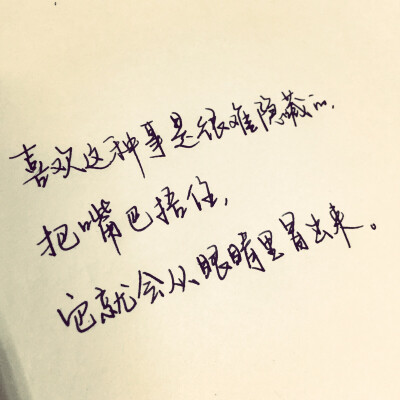 喜欢这种事是很难隐藏的.
把嘴巴捂住,
它就会从眼睛里冒出来。